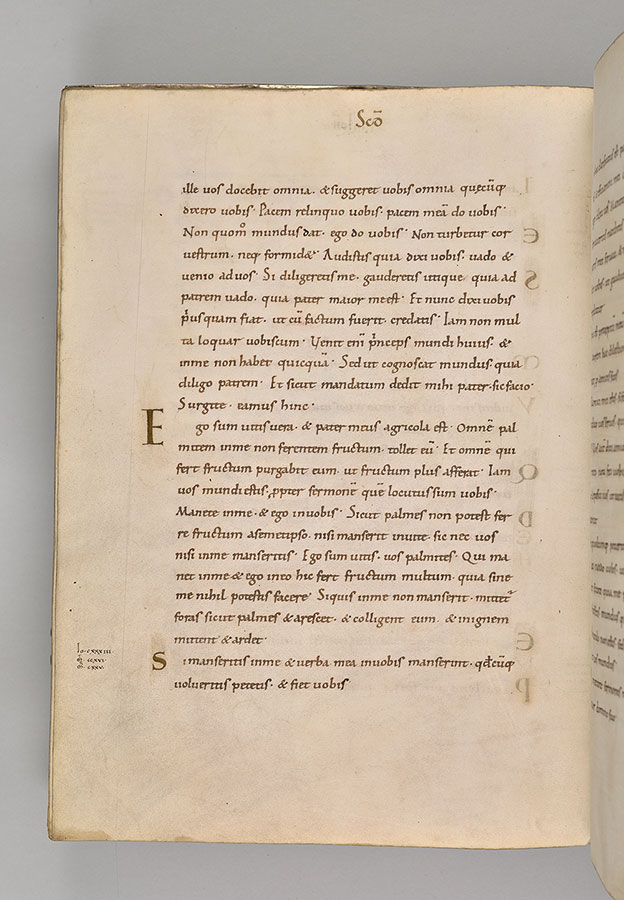 Scd̄
ille vos docebit omnia. & suggeret vobis omnia quęcūq;
dixero vobis· Pacem relinquo vobis· pacem meā do vobis·
Non quom̄ mundus dat· ego do vobis· Non turbetur cor
vestrum· neq; formid&· Audistis quia dixi vobis· vado &
venio ad vos· Si diligeretis me· gauderetis utique· quia ad
patrem vado· quia pater maior me est· Et nunc dixi vobis
p̄usquam fiat· ut cū factum fuerit· credatis· Iam non mul
ta loquar vobiscum· Venit enī p̄nceps mundi huius· &
in me non habet quicquā· Sed ut cognoscat mundus· quia
diligo patrem· Et sicut mandatum dedit mihi pater· sic facio·
Surgite· eamus hinc·
E go sum vitis vera· & pater meus agricola est· Omnē pal
mitem in me non ferentem fructum· tollet eū· Et omnē qui
fert fructum purgabit eum· ut fructum plus afferat· Iam
vos mundi estis· ꝓpter sermonē quē locutus sum vobis·
Manete in me· & ego in vobis· Sicut palmes non potest fer
re fructum a semetipso· nisi manserit in vite· sic nec vos
nisi in me manseritis· Ego sum vitis· vos palmites· Qui ma
net in me & ego in eo hic fert fructum multum· quia sine
me nihil potestis facere· Si quis in me non manserit· mittet᷑
foras sicut palmes & aresc&· & colligent eum· & in ignem
mittent & ard&·
S i manseritis in me & verba mea in vobis manserint· qđcūq;
volueritis petetis· & fiet vobis